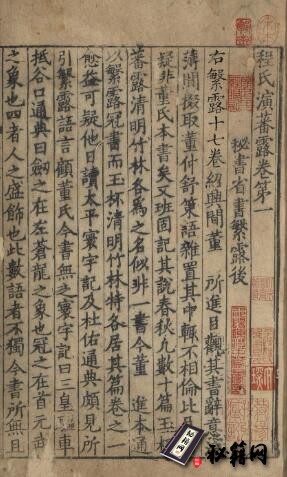 程氏演蕃露卷第一
秘書省書繁露後
右繁露十七卷紹興間董 所進臣觀其書辭意
薄間掇取董仲舒策語雜置其中輒不相倫比
疑非董氏本書矣又班固記其說春秋凡數十篇玉杯
蕃露清明竹林各為之名似非一書今董 進本通
以繁露冠書而玉杯清明竹林特各居其篇卷之一
愈益可疑他日讀太平寰宇記及杜佑通典頗見所
引繁露語言顧董氏今書無之寰宇記曰三皇 車
抵谷口通典曰劒之在左蒼龍之象也冠之在首元武
之象也四者人之盛飾也此數語者不獨今書所無且
秘籍网